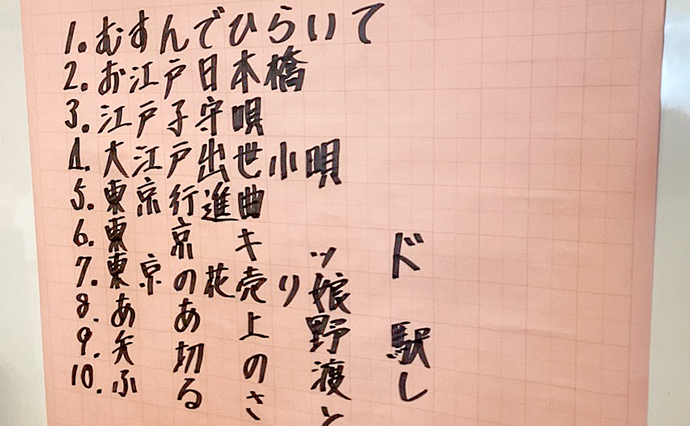 1. むすんでひらいて
2. お江戸日本橋
3. 江戸子守唄
4. 大江戸出世小唄
5. 東京行進曲
6. 東京キッド
7. 東京の花売り娘
8. ああ上野駅
9. 矢切の渡し
10. ふるさと